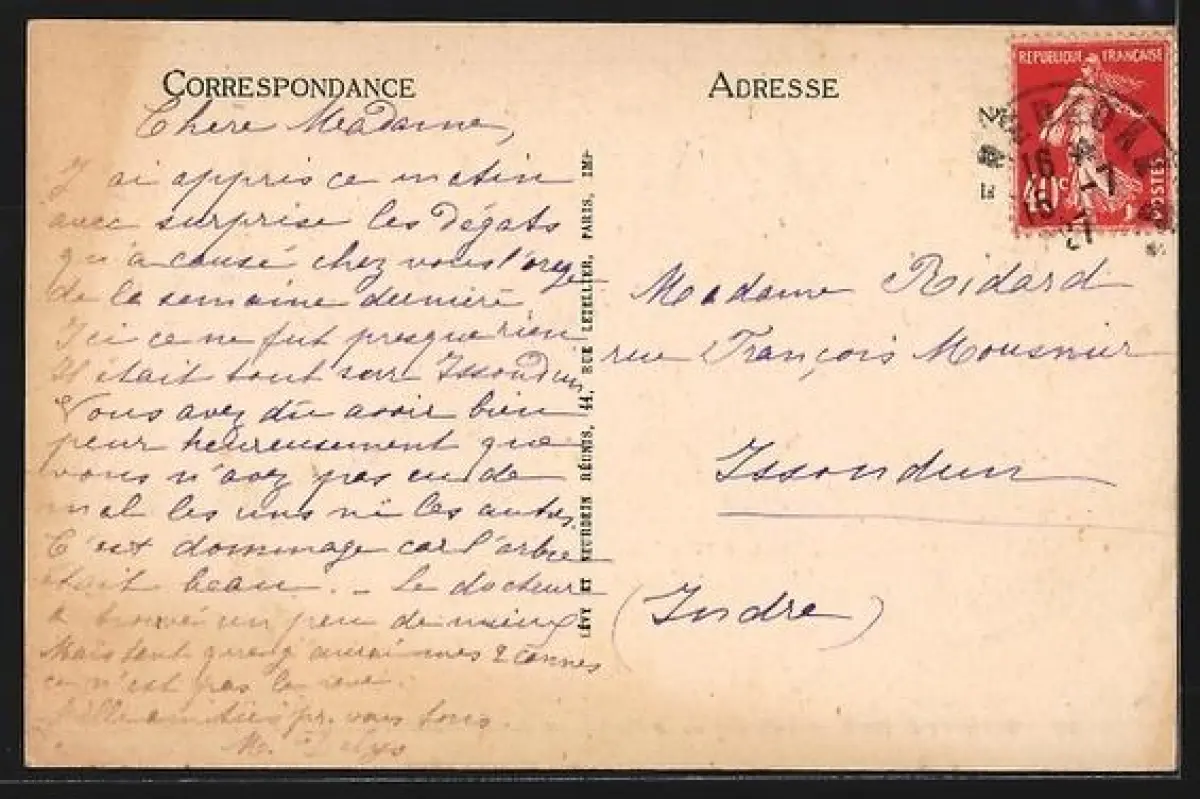 CORRESPONDANCE
Chere Madame,
J'ai appris ce matin
avec surprise les dégats
qu'a causé chez vous l'orage
de la semaine derniere
Ici ce ne fut presque rien
Il était tout sur Issoudun
Vous avez dû avoir bien
peur heureusement que
vous n'avez pas eu de
mal les uns ni les autres.
C'est dommage car l'arbre
était beau. - Le docteur
a trouvé un peu de mieux
Mais tant que j'aurai mes 2 cannes
ce n'est pas le
Mille amitiés pr. vous tous.
M.
LÉVY ET NEURDEIN RÉUNIS, 44, RUE LETELLIER, PARIS, IMP
ADRESSE
REPUBLIQUE FRANÇAISE
40c
POSTES
16
16 -7
27
Madame Ridard
rue François Mousnier
Issoudun
(Indre)